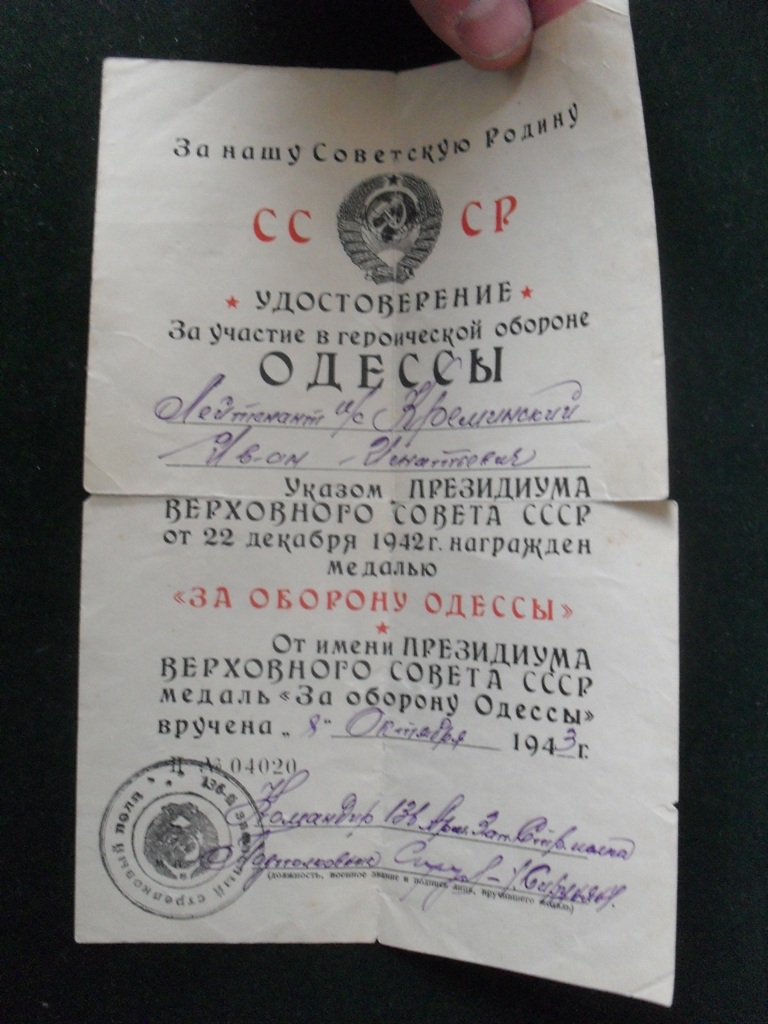 За нашу Советскую Родину
СС СР
УДОСТОВЕРЕНИЕ
За участие в героической обороне
ОДЕССЫ
Лейтенант а/с Креминский
Иван Игнатьевич
Указом ПРЕЗИДИУМА
ВЕРХОВНОГО СОВЕТА СССР
от 22 декабря 1942 г. награжден
медалью
«ЗА ОБОРОНУ ОДЕССЫ»
От имени ПРЕЗИДИУМА
ВЕРХОВНОГО СОВЕТА СССР
медаль «За оборону Одессы»
вручена „8" Октября 1943 г.
Ц № 04020
136-й запасный стрелковый полк
Командир 136 Арм. Зап. Стр. полка
Подполковник
(должность, военное звание и подпись лица, вручившего медаль)